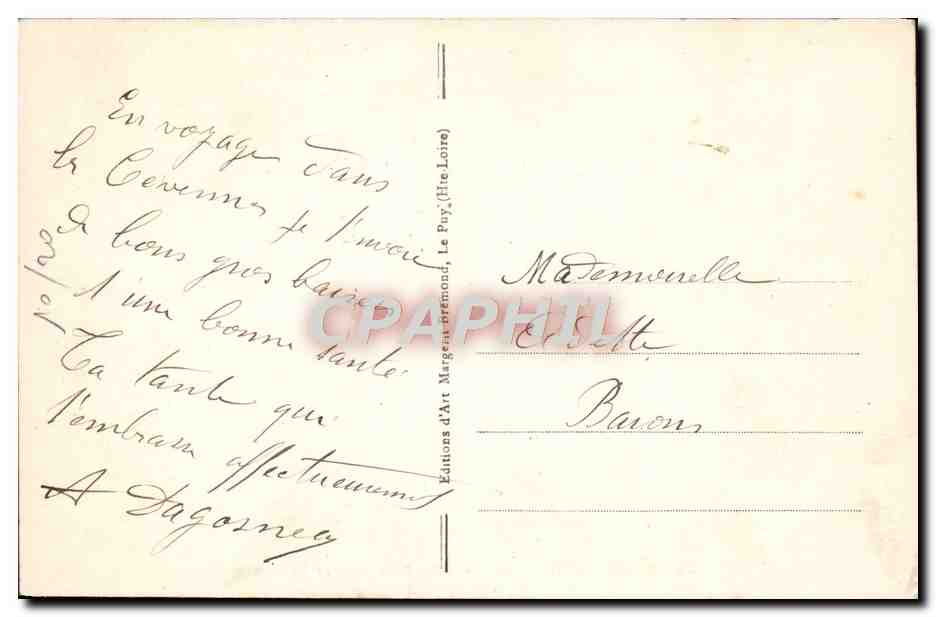 En voyage dans
les Cevennes je t'envoie
de bons gros baisers
d'une bonne santé
Ta tante qui
t'embrasse affectueusement
A Dagorney
Editions d'Art Margerit Brémond, Le Puy (Hte-Loire)
Mademoiselle
Odette
Barons
CPAPHIL